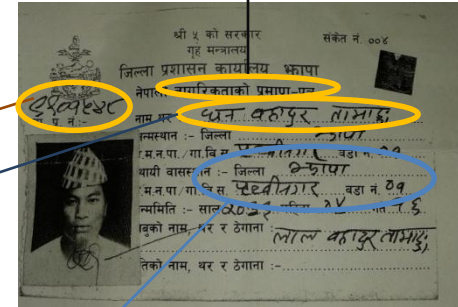 श्री ५ को सरकार
गृह मन्त्रालय
संकेत नं. ००४
जिल्ला प्रशासन कार्यालय झापा
नेपाली नागरिकताको प्रमाण-पत्र
प. नं.-
नाम थर धन बहादुर तामाङ
न्मस्थान :- जिल्ला झापा
.म.न.पा./गा.वि.स. पृथ्वीनगर वडा नं.
थायी बासस्थान :- जिल्ला झापा
.म.न.पा./गा.वि.स. पृथ्वीनगर वडा नं. ०१
न्ममिति :- साल
बाबुको नाम, थर र ठेगाना :
लाल बहादुर तामाङ
तिको नाम, थर र ठेगाना :-